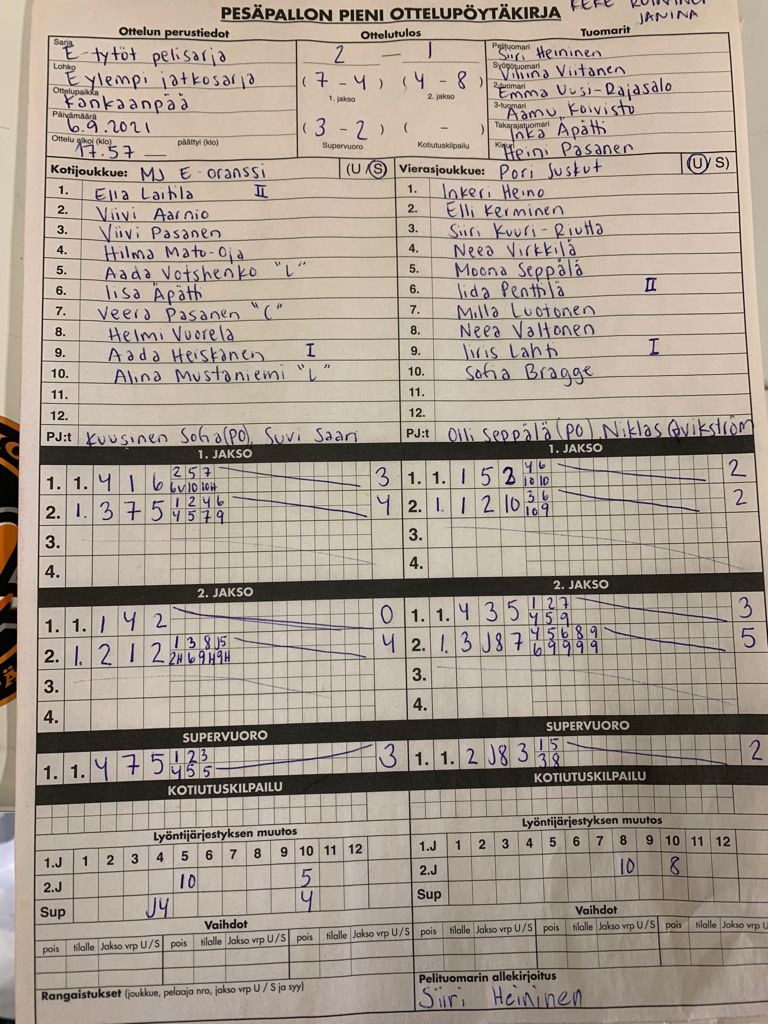 PESÄPALLON PIENI OTTELUPÖYTÄKIRJA
JANINA
Ottelun perustiedot
Ottelutulos
Tuomarit
Sarja
E-tytöt pelisarja
Lohko
E ylempi jatkosarja
Ottelupaikka
Kankaanpää
Päivämäärä
6.9.2021
Ottelu alkoi (klo)
päättyi (klo)
17.57
2 — 1
(7 - 4) (4 - 8)
1. jakso 2. jakso
(3 - 2) ( - )
Supervuoro Kotiutuskilpailu
Pelituomari
Siiri Heininen
Syöttötuomari
Villiina Viitanen
2-tuomari
Emma Uusi-Rajasalo
3-tuomari
Aamu Koivisto
Takarajatuomari
Inka Äpätti
Kirjuri
Heini Pasanen
Kotijoukkue: MJ E-oranssi (U/S)
1. Ella Laihla II
2. Viivi Aarnio
3. Viivi Pasanen
4. Hilma Mato-Oja
5. Aada Votshenko "L"
6. Iisa Äpätti
7. Veera Pasanen "C"
8. Helmi Vuorela
9. Aada Heiskanen I
10. Alina Mustaniemi "L"
11.
12.
PJ:t Kuusinen Sofia(PO), Suvi Saari
Vierasjoukkue: Pori Juskut (U/S)
1. Inkeri Heino
2. Elli Kerminen
3. Siiri Kuuri-Riutta
4. Neea Virkkilä
5. Moona Seppälä
6. Iida Penttilä II
7. Milla Luotonen
8. Neea Valtonen
9. Iiris Lahti I
10. Sofia Bragge
11.
12.
PJ:t Olli Seppälä (PO) Niklas Qvikström
1. JAKSO
1. 1. 4 1 6 2 5 7 3
6V 10 10H
2. 1. 3 7 5 1 2 4 6 4
4 5 7 9
3.
4.
1. JAKSO
1. 1. 1 5 2 4 6 2
10 10
2. 1. 1 2 10 3 6 2
10 9
3.
4.
2. JAKSO
1. 1. 1 4 2 0
2. 1. 2 1 2 1 3 8 J5 4
2H 6 9H 9H
3.
4.
2. JAKSO
1. 1. 4 3 5 1 2 7 3
4 5 9
2. 1. 3 J8 7 4 5 6 8 9 5
6 9 9 9 9
3.
4.
SUPERVUORO
1. 1. 4 7 5 1 2 3 3
4 5 5
SUPERVUORO
1. 1. 2 J8 3 1 5 2
3 8
KOTIUTUSKILPAILU
KOTIUTUSKILPAILU
Lyöntijärjestyksen muutos
1.J 1 2 3 4 5 6 7 8 9 10 11 12
2.J 10 5
Sup J4 4
Lyöntijärjestyksen muutos
1.J 1 2 3 4 5 6 7 8 9 10 11 12
2.J 10 8
Sup
Vaihdot
pois tilalle Jakso vrp U/S pois tilalle Jakso vrp U/S pois tilalle Jakso vrp U/S
Vaihdot
pois tilalle Jakso vrp U/S pois tilalle Jakso vrp U/S pois tilalle Jakso vrp U
Rangaistukset (joukkue, pelaaja nro, jakso vrp U / S ja syy)
Pelituomarin allekirjoitus
Siiri Heininen